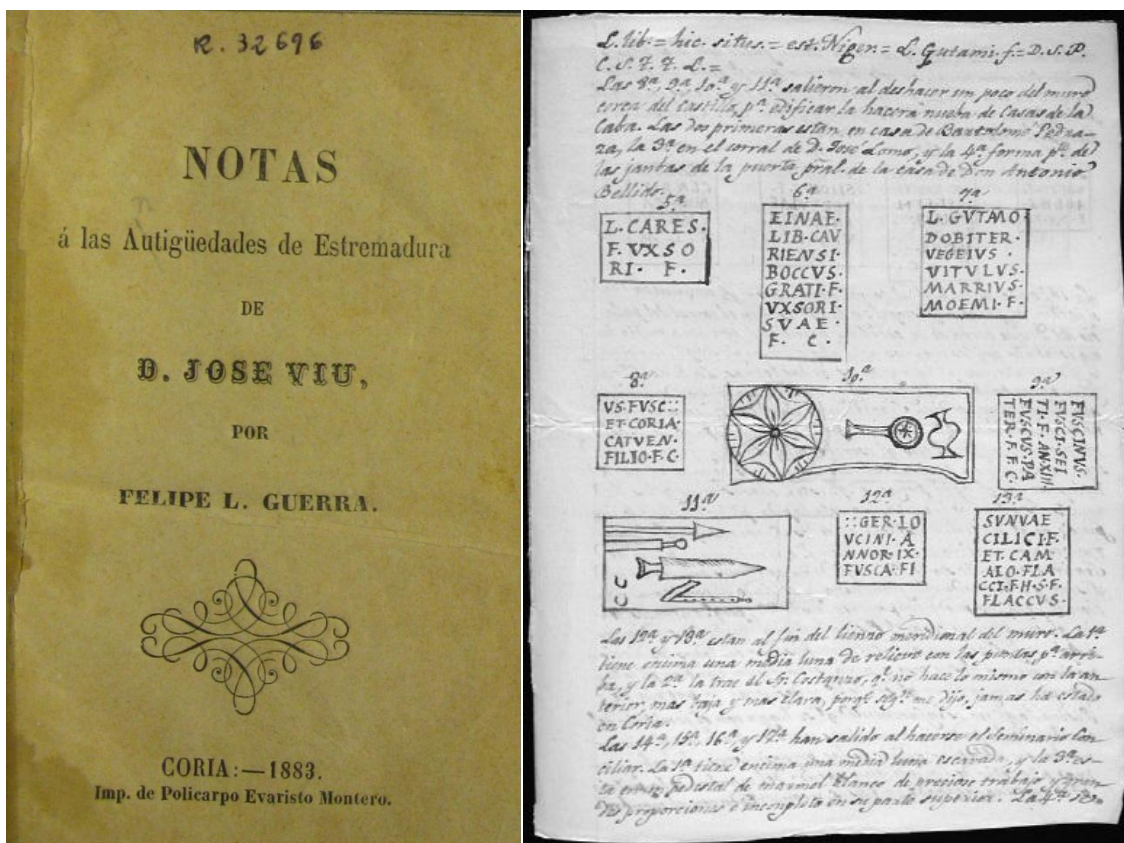 R. 32696
NOTAS
á las Autigüedades de Estremadura
DE
D. JOSE VIU,
POR
FELIPE L. GUERRA.
CORIA:—1883.
Imp. de Policarpo Evaristo Montero.
L. lib. = hic. situs. = est. Niger. = L. Gutami. f. = D. S. P.
C. S. T. T. L. =
Las 8ª, 9ª, 10ª y 11ª salieron al deshacer un poco del muro
cerca del Castillo, pª edificar la hacera nueba de Casas de la
Caba. Las dos primeras estan en casa de Bartolomé Pedra-
za, la 3ª en el corral de D. José Lomo, y la 4ª forma pte de
las jantas de la puerta pral. de la casa de Don Antonio
Bellido.
5ª
L. CARES.
F. VXSO
RI. F.
6ª
EINAF.
LIB. CAV
RIENSI.
BOCCVS.
GRATI. F.
VXSORI.
SVAE.
F. C.
7ª
L. GVTMO
DOBITER.
VEGEIVS.
VITVLVS.
MARRIVS.
MOEMI. F.
8ª
VS. FVSC::
ET. CORIA.
CATVEN.
FILIO. F. C.
10ª
9ª
FVSCINVS.
FVSCI. SEI
TI. F. ANXIII
FVSCVS. PA
TER. F. F. C.
11ª
12ª
::GER. LO
VCINI. A
NNOR. IX.
FVSCA. FI
13ª
SVNVAE
CILICI. F.
ET. CAM
ALO. FLA
CCI. F. H. S. F.
FLACCVS.
Las 12ª y 13ª estan al fin del lienzo meridional del muro. La 1ª
tiene encima una media luna de relieve con las puntas pª arri-
ba, y la 2ª la trae el Sr. Costanzo, q. no hace lo mismo con la an-
terior, mas baja y mas clara, porqe sgn me dijo, jamas ha estado
en Coria.
Las 14ª, 15ª, 16ª y 17ª han salido al hacerse el Seminario Con-
ciliar. La 1ª tiene encima una media luna escavada, y la 3ª es-
ta en un pedestal de marmol blanco de precioso trabajo y gran-
des proporciones e incompleto en su parte superior. La 4ª